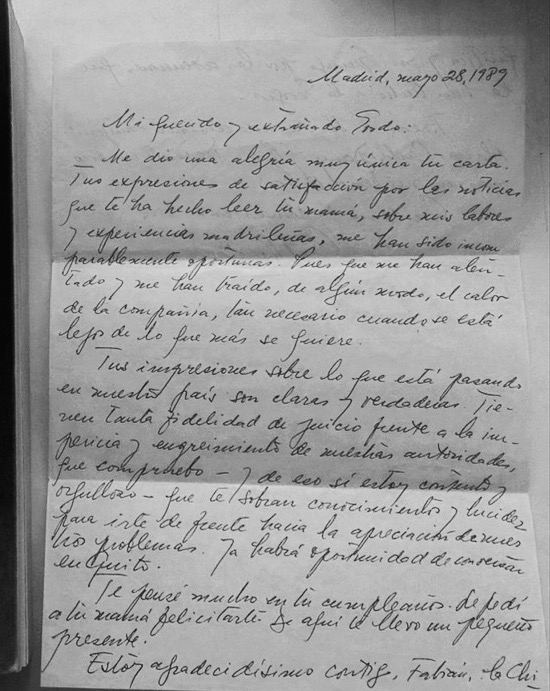 Madrid, mayo 28, 1989
Mi querido y extrañado Gordo:
Me dio una alegría muy única tu carta.
Tus expresiones de satisfacción por las noticias
que te ha hecho leer tu mamá, sobre mis labores
y experiencias madrileñas, me han sido incom
parablemente oportunas. Pues que me han alen-
tado y me han traído, de algún modo, el calor
de la compañía, tan necesario cuando se está
lejos de lo que más se quiere.
Tus impresiones sobre lo que está pasando
en nuestro país son claras y verdaderas. Tie-
nen tanta fidelidad de juicio frente a la im-
pericia y engreimiento de nuestras autoridades,
que compruebo – y de eso sí estoy contento y
orgulloso – que te sobran conocimientos y lucidez
para irte de frente hacia la apreciación de nues
tros problemas. Ya habrá oportunidad de conversar
en Quito.
Te pensé mucho en tu cumpleaños. Le pedí
a tu mamá felicitarte. De aquí te llevo un pequeño
presente.
Estoy agradecidísimo contigo, Fabián, la Chi